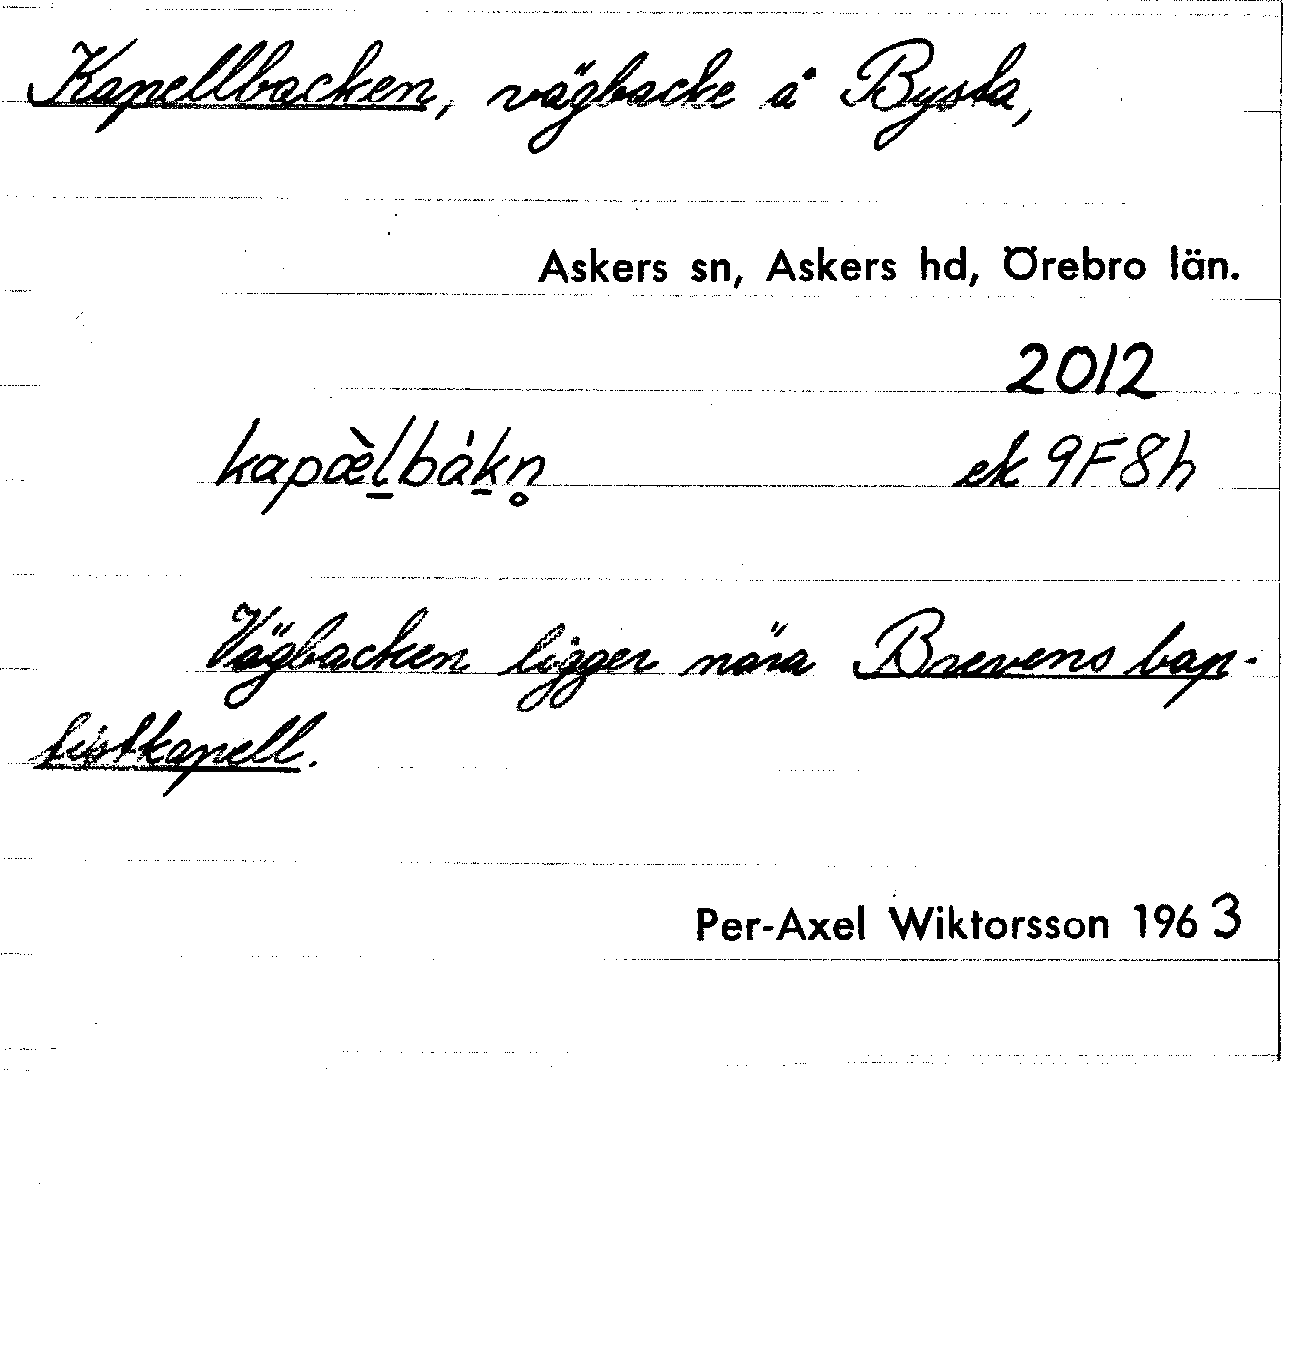 Kapellbacken, vägbacke å Bysta,
Askers sn, Askers hd, Örebro län.
2012
kapæ̀l̠bák̠n̥ ek 9F8h
Vägbacken ligger nära Brevens bap-
tistkapell.
Per-Axel Wiktorsson 1963